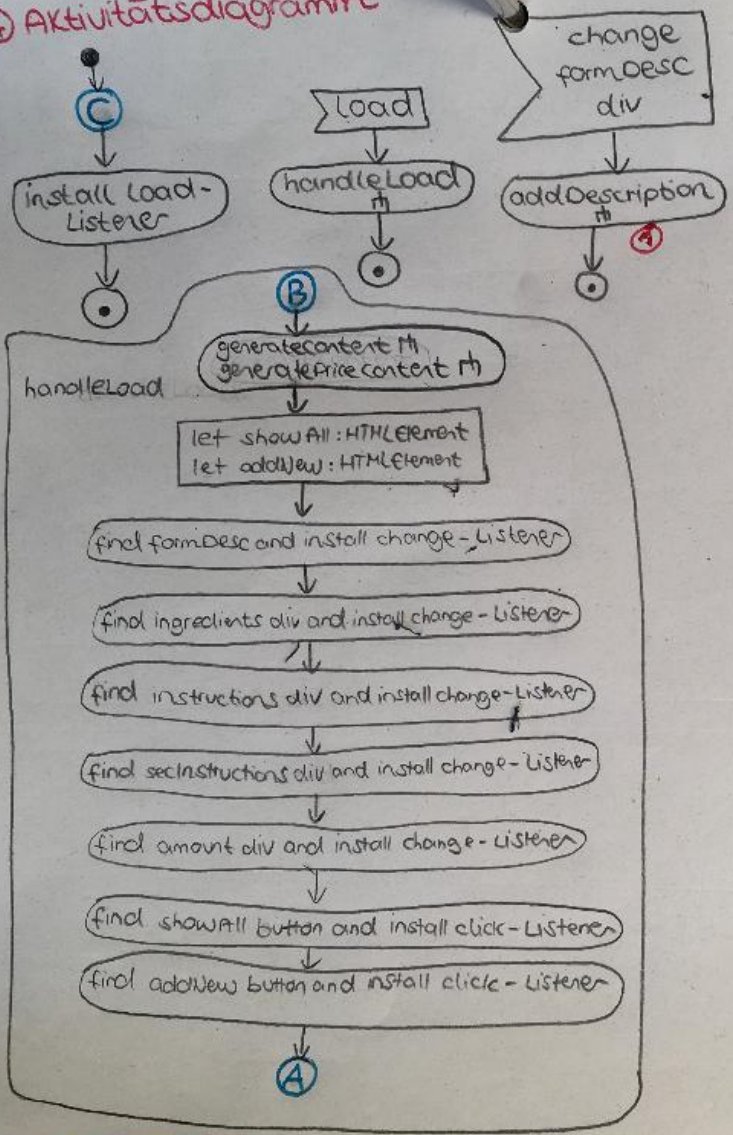 Aktivitätsdiagramm
C
install load-
Listener
load
handleLoad
change
formDesc
div
addDescription
A
B
generateContent
generatePriceContent
handleLoad
let showAll : HTMLElement
let addNew : HTMLElement
find formDesc and install change-Listener
find ingredients div and install change-Listener
find instructions div and install change-Listener
find secInstructions div and install change-Listener
find amount div and install change-Listener
find showAll button and install click-Listener
find addNew button and install click-Listener
A